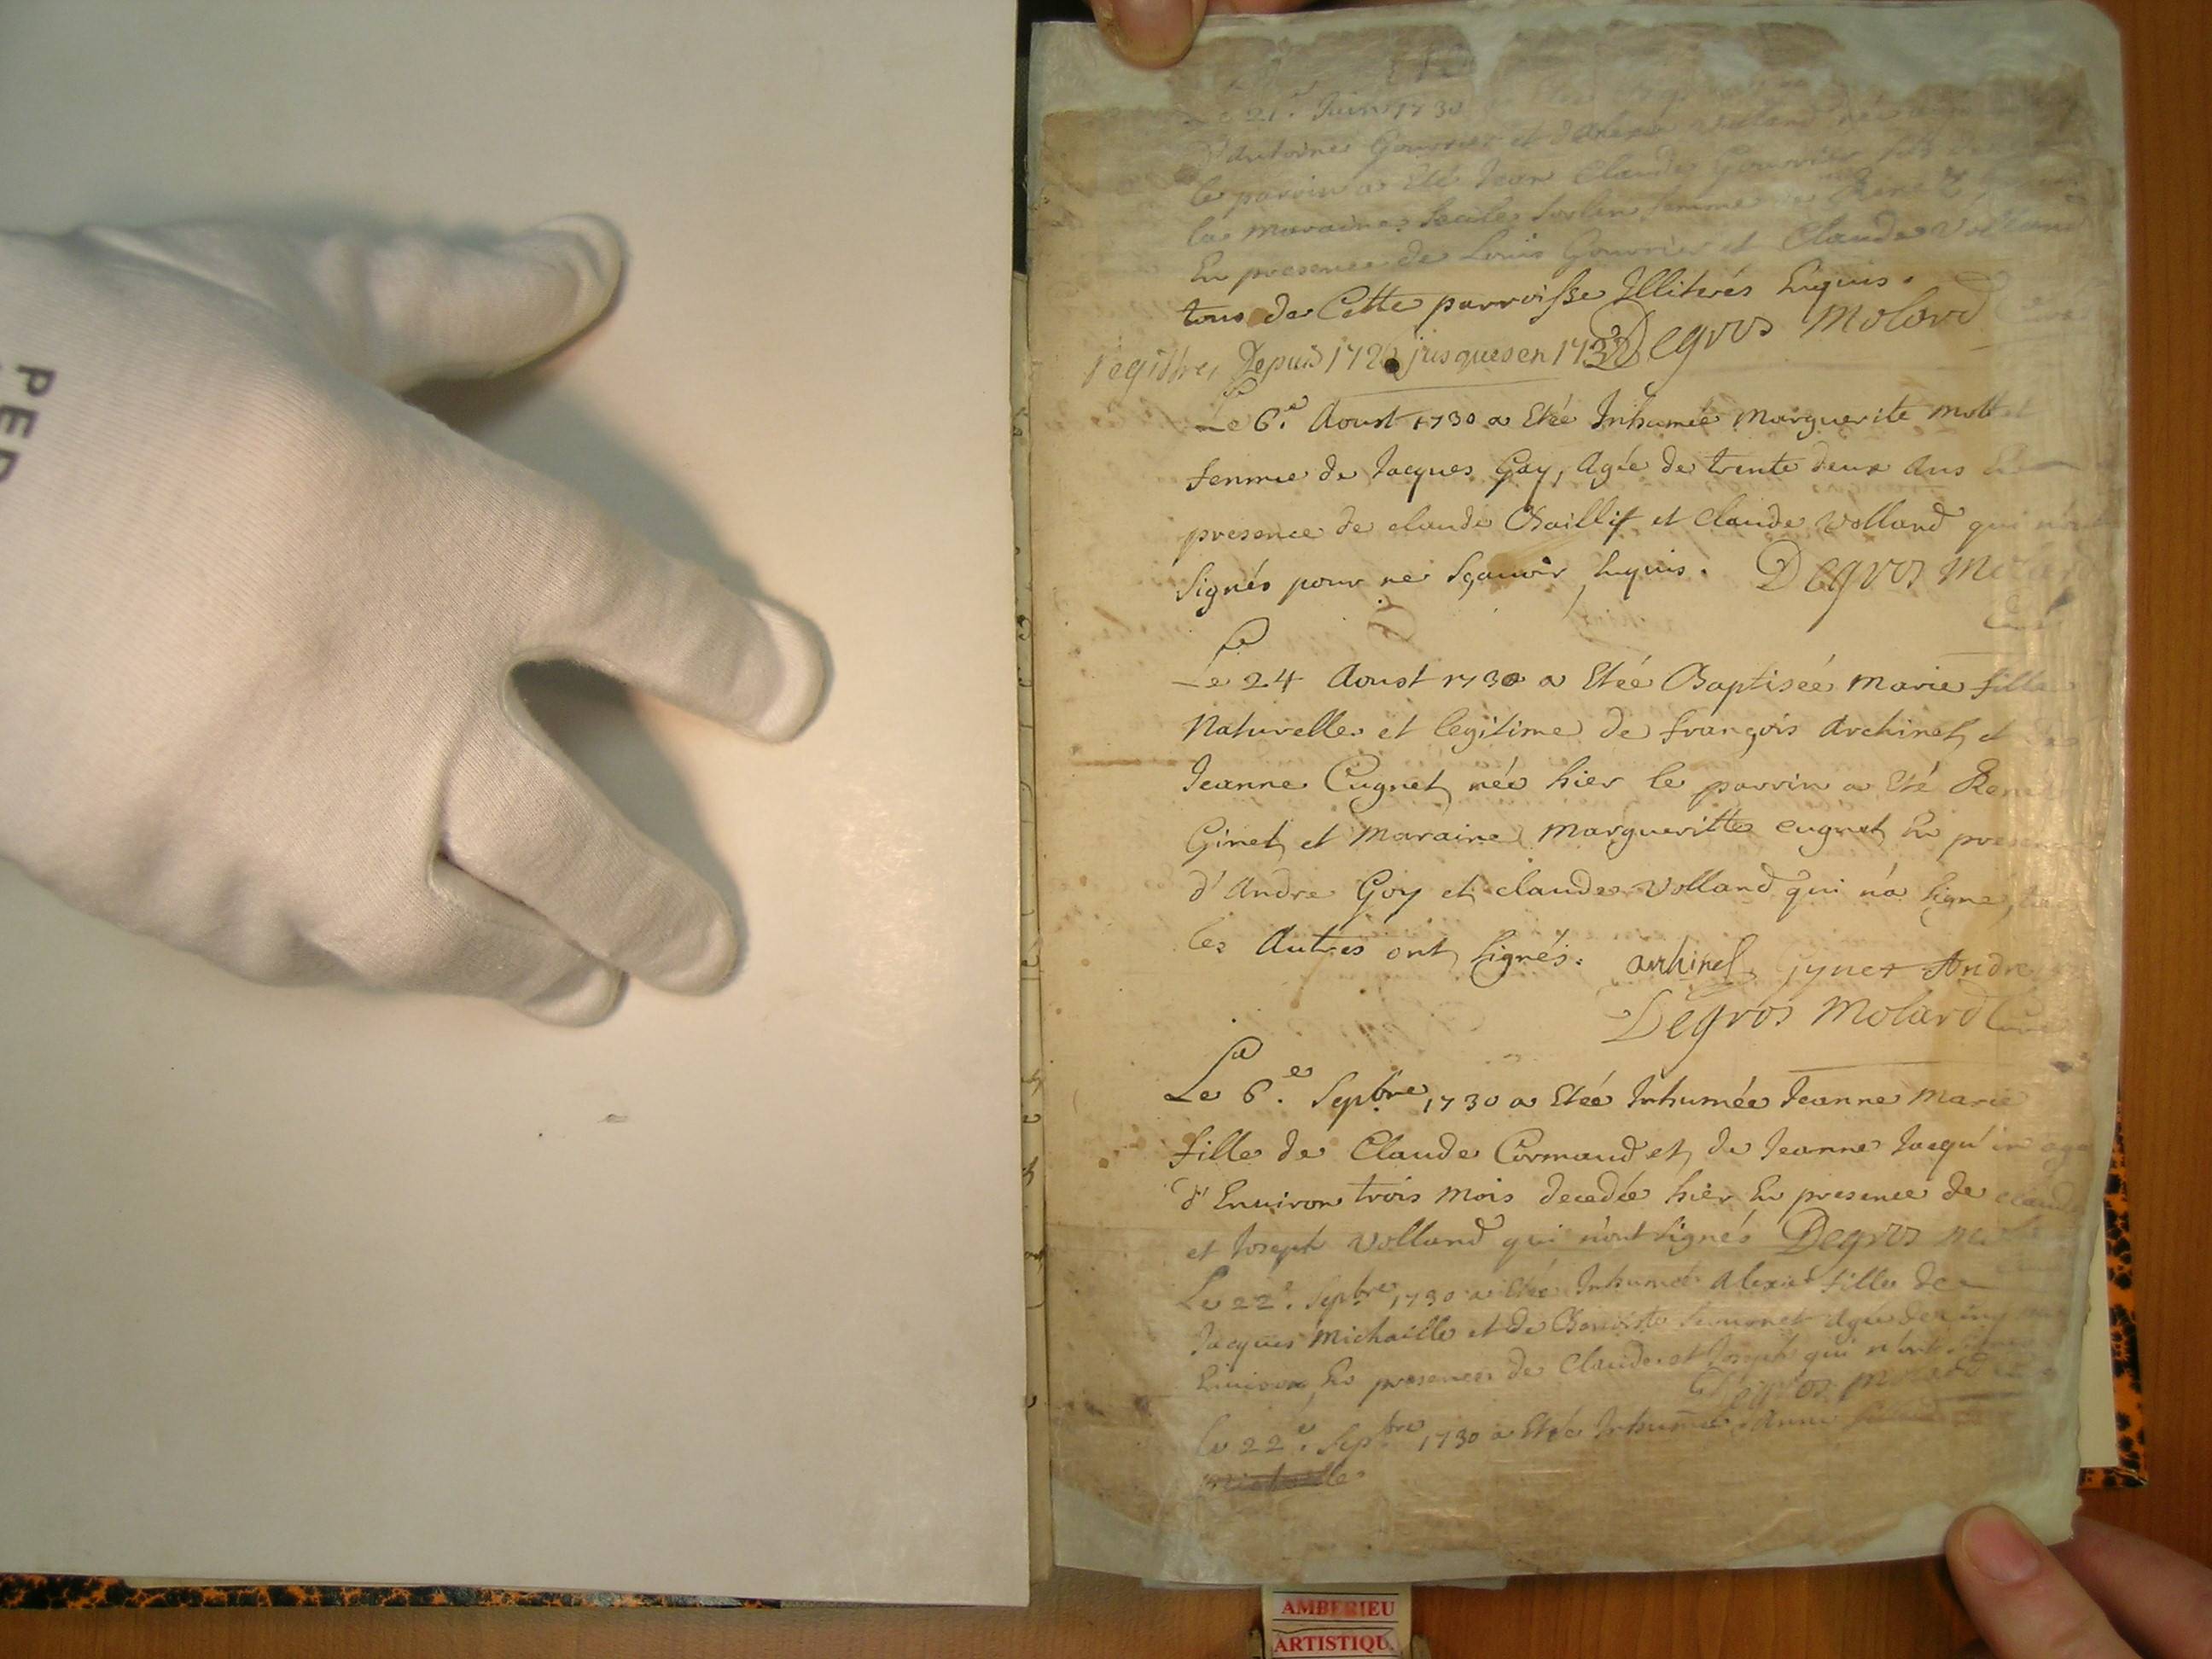 PED
Le 21.e Juin 1730
d'Antoine Gourrier et d'Alexie Volland
le parrin a Eté Jean Claude Gourrier fils de
la maraine femme de René
En presence de Louis Gourrier et Claude Volland
tous de Cette parroisse Illiterés Enquis.
Degros Molard
registre, Depuis 172 jusques en 1732
Le 6.e Aoust 1730 a Etée Inhumée Marguerite
femme de Jacques Goy, Agée de trente deux Ans En
presence de claude Baillif et claude Volland qui n'ont
Signés pour ne Sçauoir Enquis. Degros Mola
Curé
Le 24 Aoust 1730 a Etée Baptisée Marie fille
Naturelle et legitime de françois Archinet et de
Jeanne Cugnet née hier le parrin a Eté René
Ginet et Maraine Margueritte cugnet En presence
d'Andre Goy et claude Volland qui n'a Signe,
les Autres ont Signés. archinet gynet Andre
Degros Molard Curé
Le 6.e Sepbre 1730 a Etée Inhumée Jeanne Marie
fille de Claude Cormaud et de Jeanne Jacqu'in agé
d'Enuiron trois mois decedée hier En presence de claude
et Joseph Volland qui n'ont Signés Degros
Le 22.e Sepbre 1730 a Etée Inhumée Alexie fille de
Jacques Michaille et de agée de cinq
Enuiron En presence de Claude et Joseph qui n'ont
Degros Molard
le 22.e Sepbre 1730 a Etée Inhumée Anne
AMBERIEU
ARTISTIQU